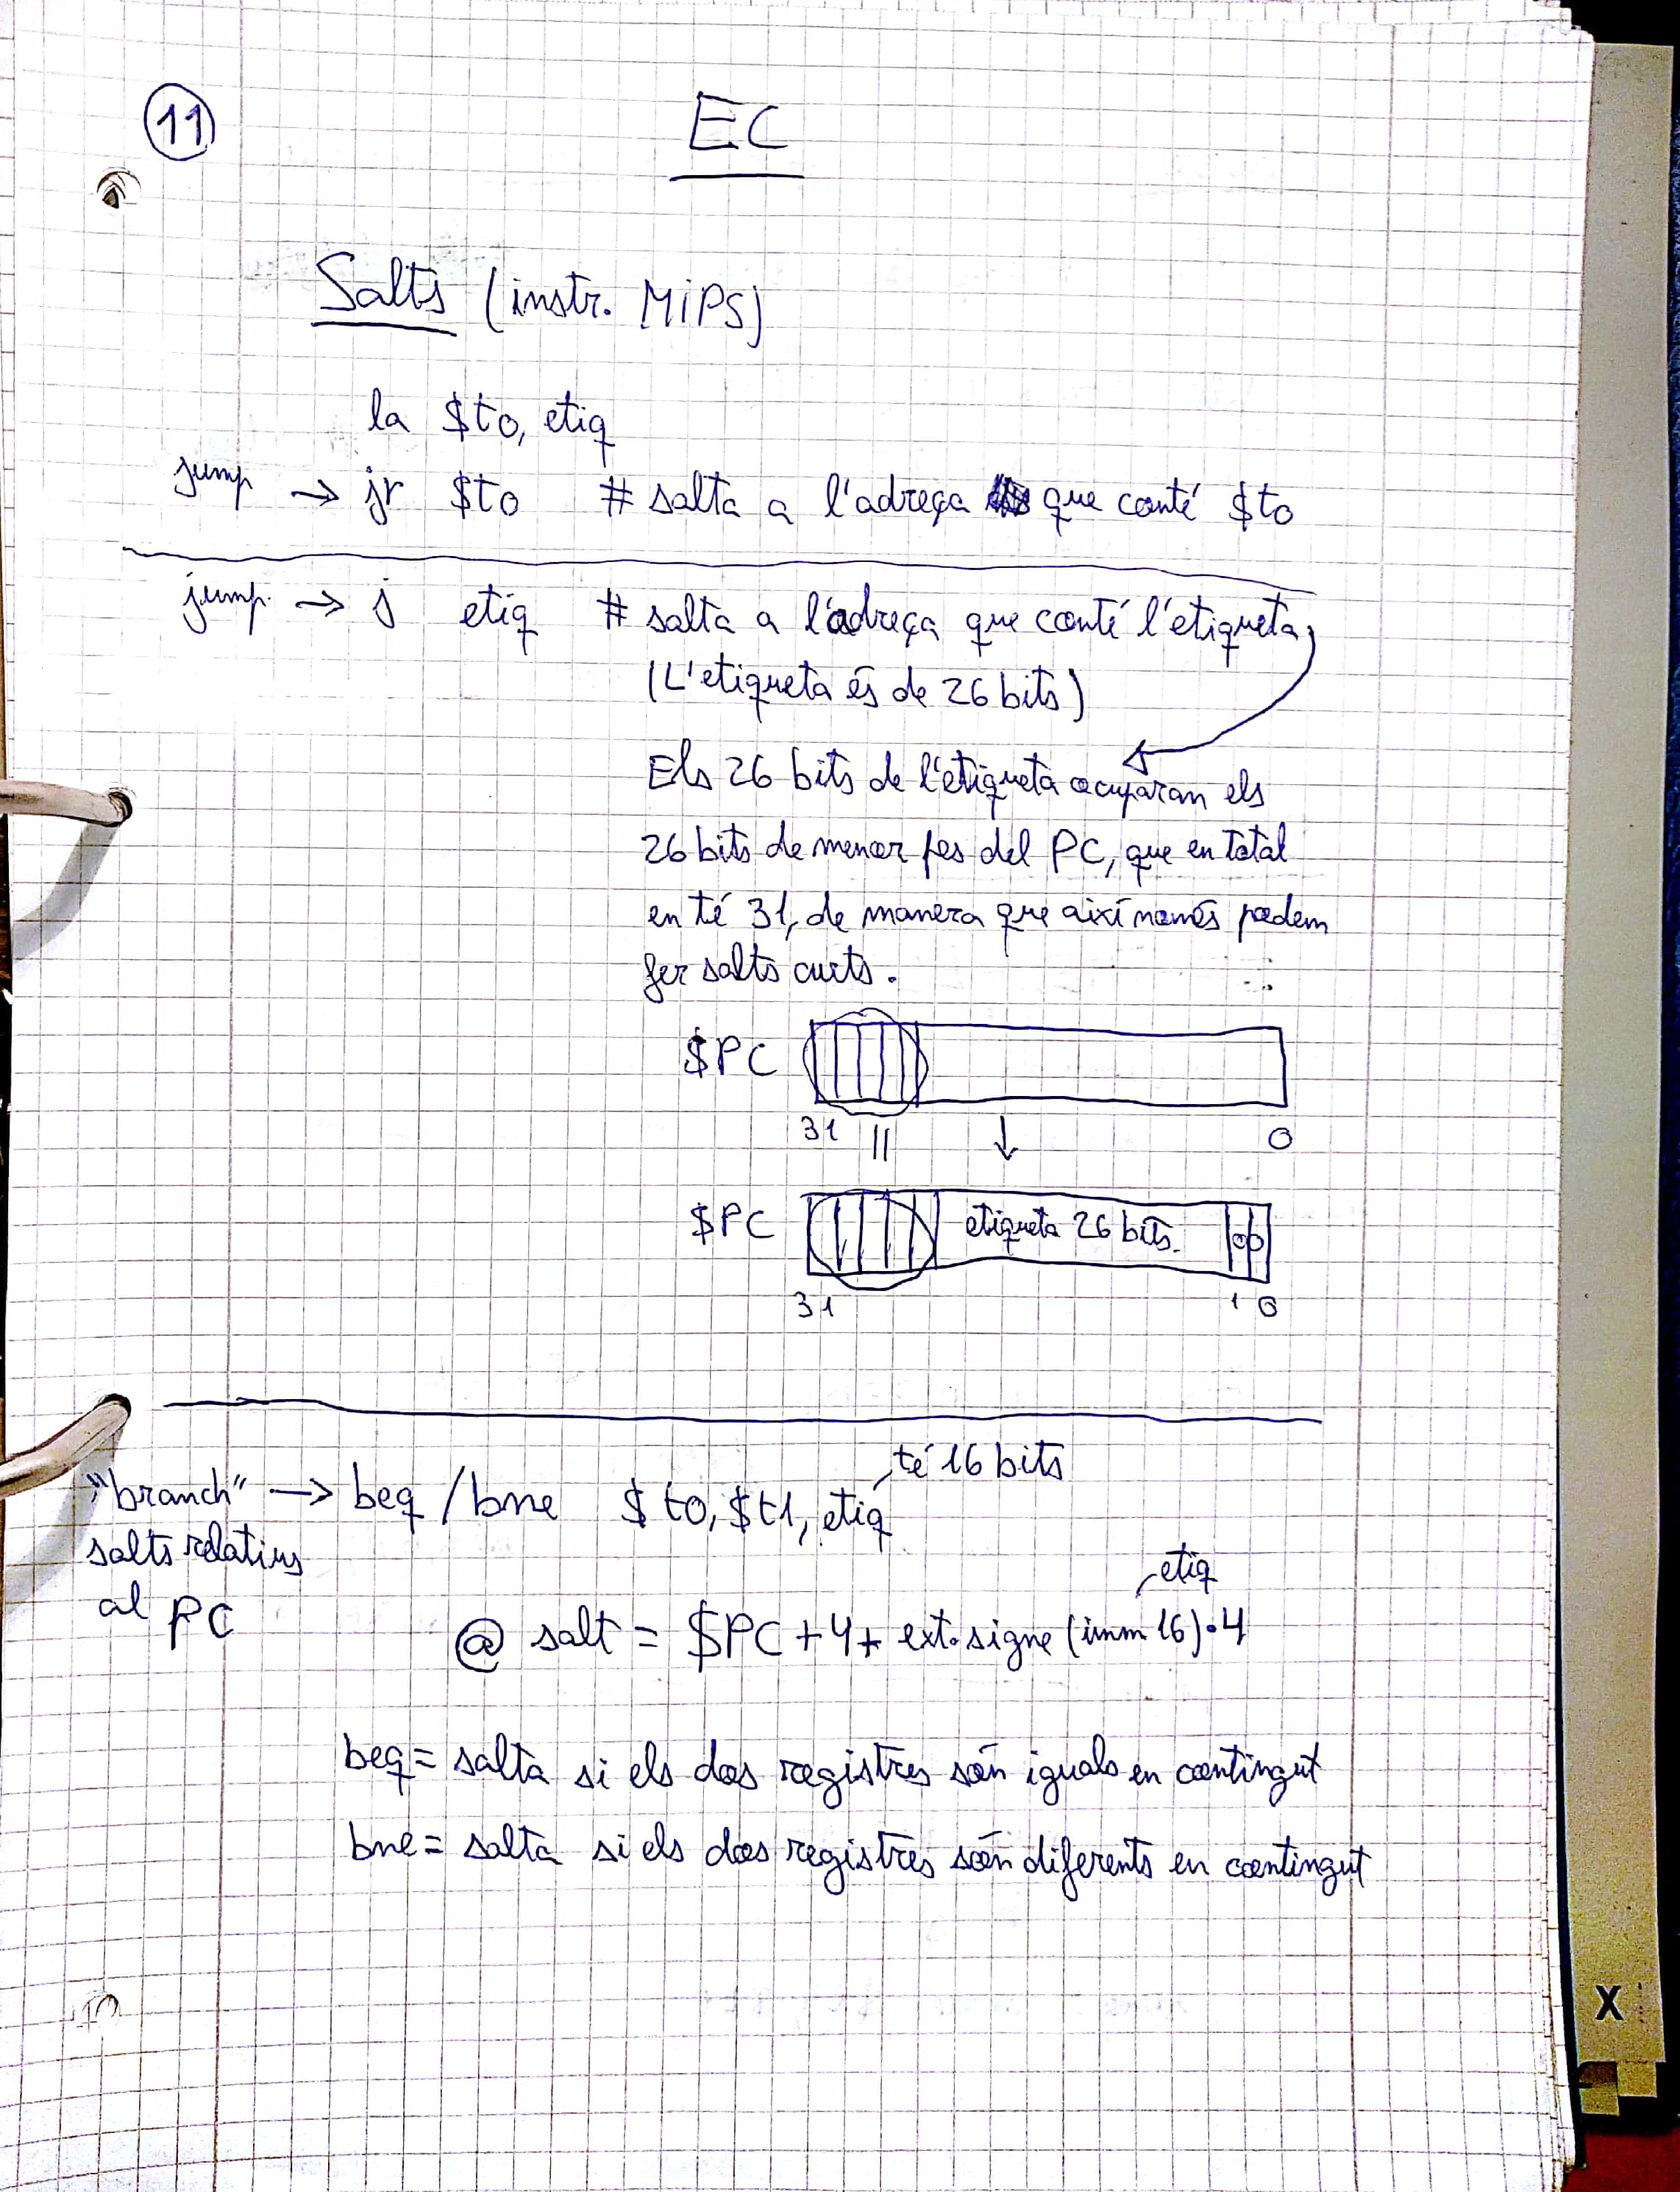 11
EC
Salts (instr. MiPS)
la $t0, etiq
jump → jr $t0 # salta a l'adreça que conté $t0
jump. → j etiq # salta a l'adreça que conté l'etiqueta,
(L'etiqueta és de 26 bits)
Els 26 bits de l'etiqueta ocuparan els
26 bits de menor pes del PC, que en total
en té 31, de manera que així només podem
fer salts curts.
$PC
31 || ↓ 0
$PC etiqueta 26 bits. 00
31 1 0
té 16 bits
"branch" → beq / bne $t0, $t1, etiq
salts relatius
al PC
etiq
@ salt = $PC + 4 + ext. signe (imm 16) • 4
beq = salta si els dos registres són iguals en contingut
bne = salta si els dos registres són diferents en contingut
X